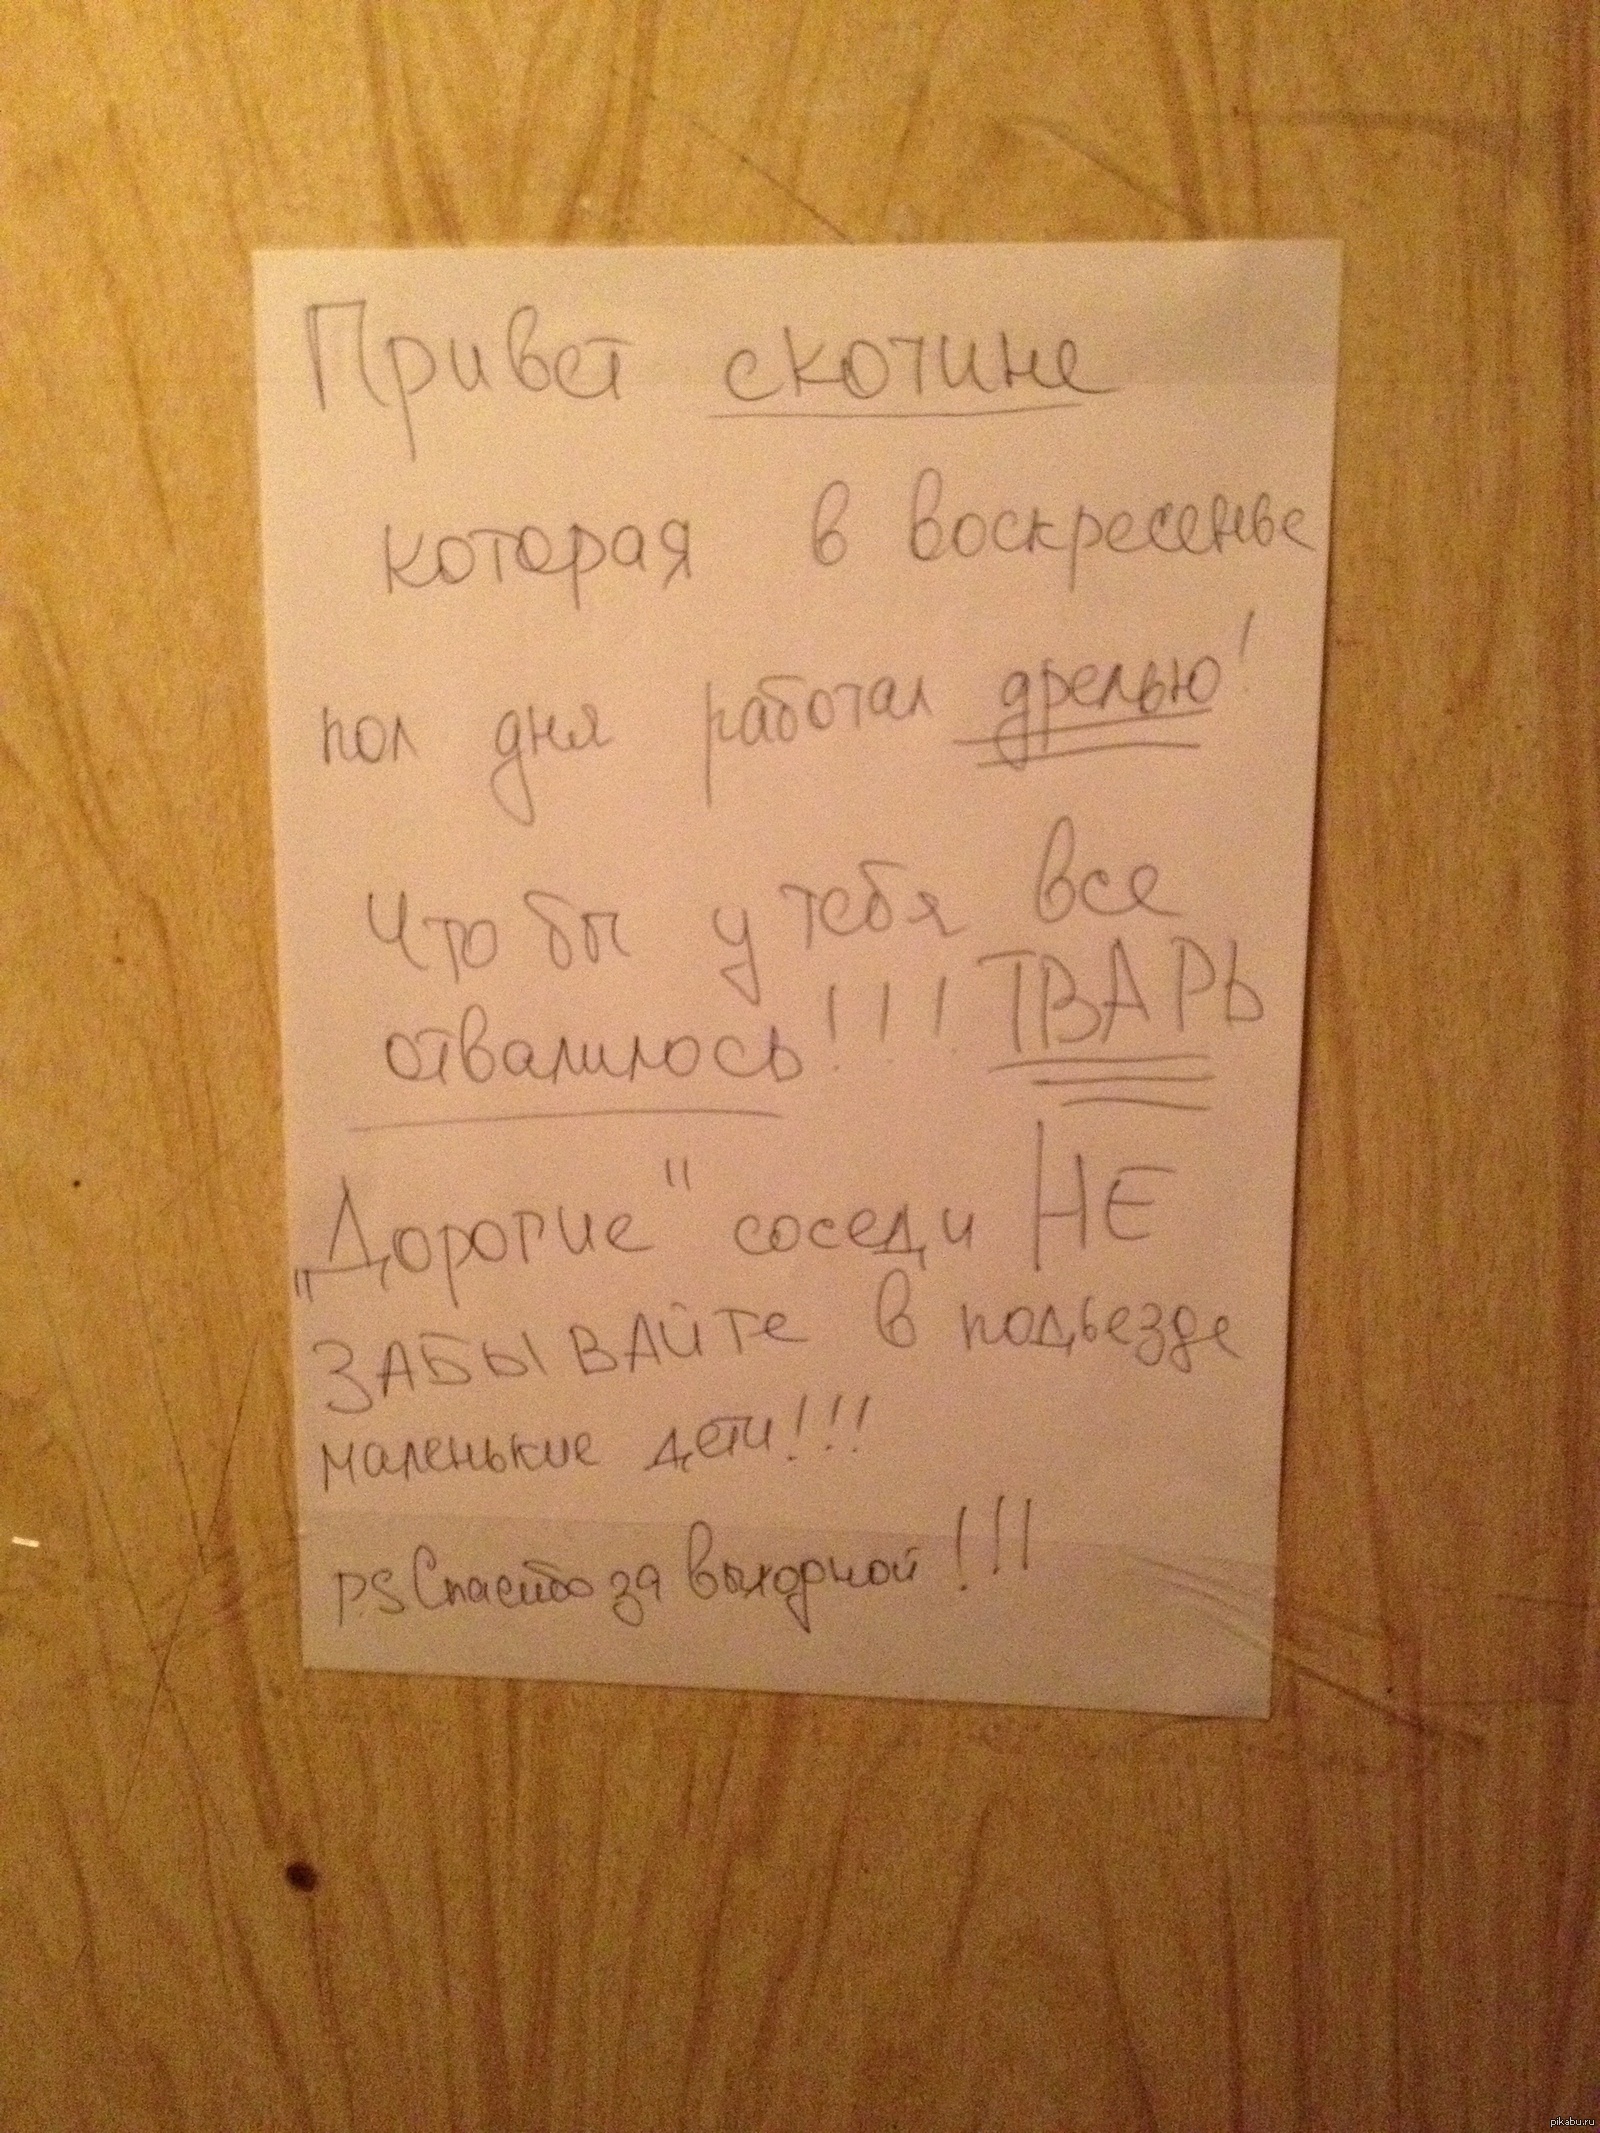 Привет скотине
которая в воскресенье
пол дня работал дрелью!
Что бы у тебя все
отвалилось!!! ТВАРЬ
„Дорогие" соседи НЕ
ЗАБЫВАЙТЕ в подъезде
маленькие дети!!!
P.S Спасибо за выходной!!!
pikabu.ru